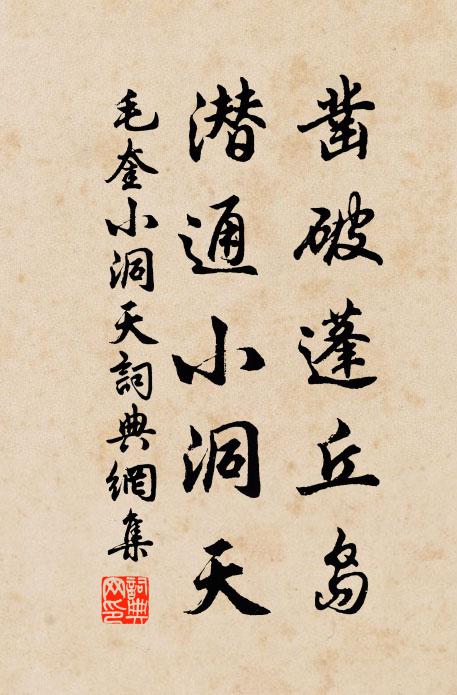 凿破蓬丘岛
潜通小洞天
毛奎小洞天詞典網集
詞典网印